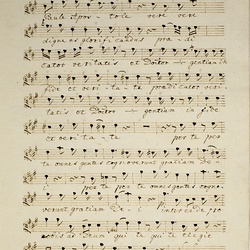 Paule Apostole vere vere
digna es glorificandus praedi
cator veritatis et Doctor gentium in
fide et veritate praedicator veri
tatis et Doctor gentium in fide
et veritate per te per
te omnes gentes cognoverunt gratiam De
i per te per te omnes gentes cogno
verunt gratiam Dei intercede pro
nobis ad Deum qui te qui te elegit